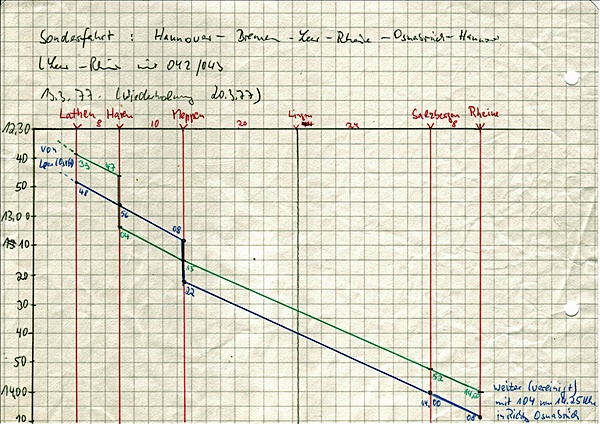 Sonderfahrt : Hannover - Bremen - Leer - Rheine - Osnabrück - Hannover
(Leer - Rheine mit 042/043
13.3.77. (Wiederholung 20.3.77)
Lathen Haren Meppen Lingen Salzbergen Rheine
8 10 20 24 8
12,30
40
von
Leer (Ostfr)
39 47
50
48
56
13,00
04
08
13,10
15
20
22
30
40
50
52
14,00
14,00
14,00
08
10
weiter (vereinigt)
mit 104 um 14.25 Uhr
in Richtg Osnabrück